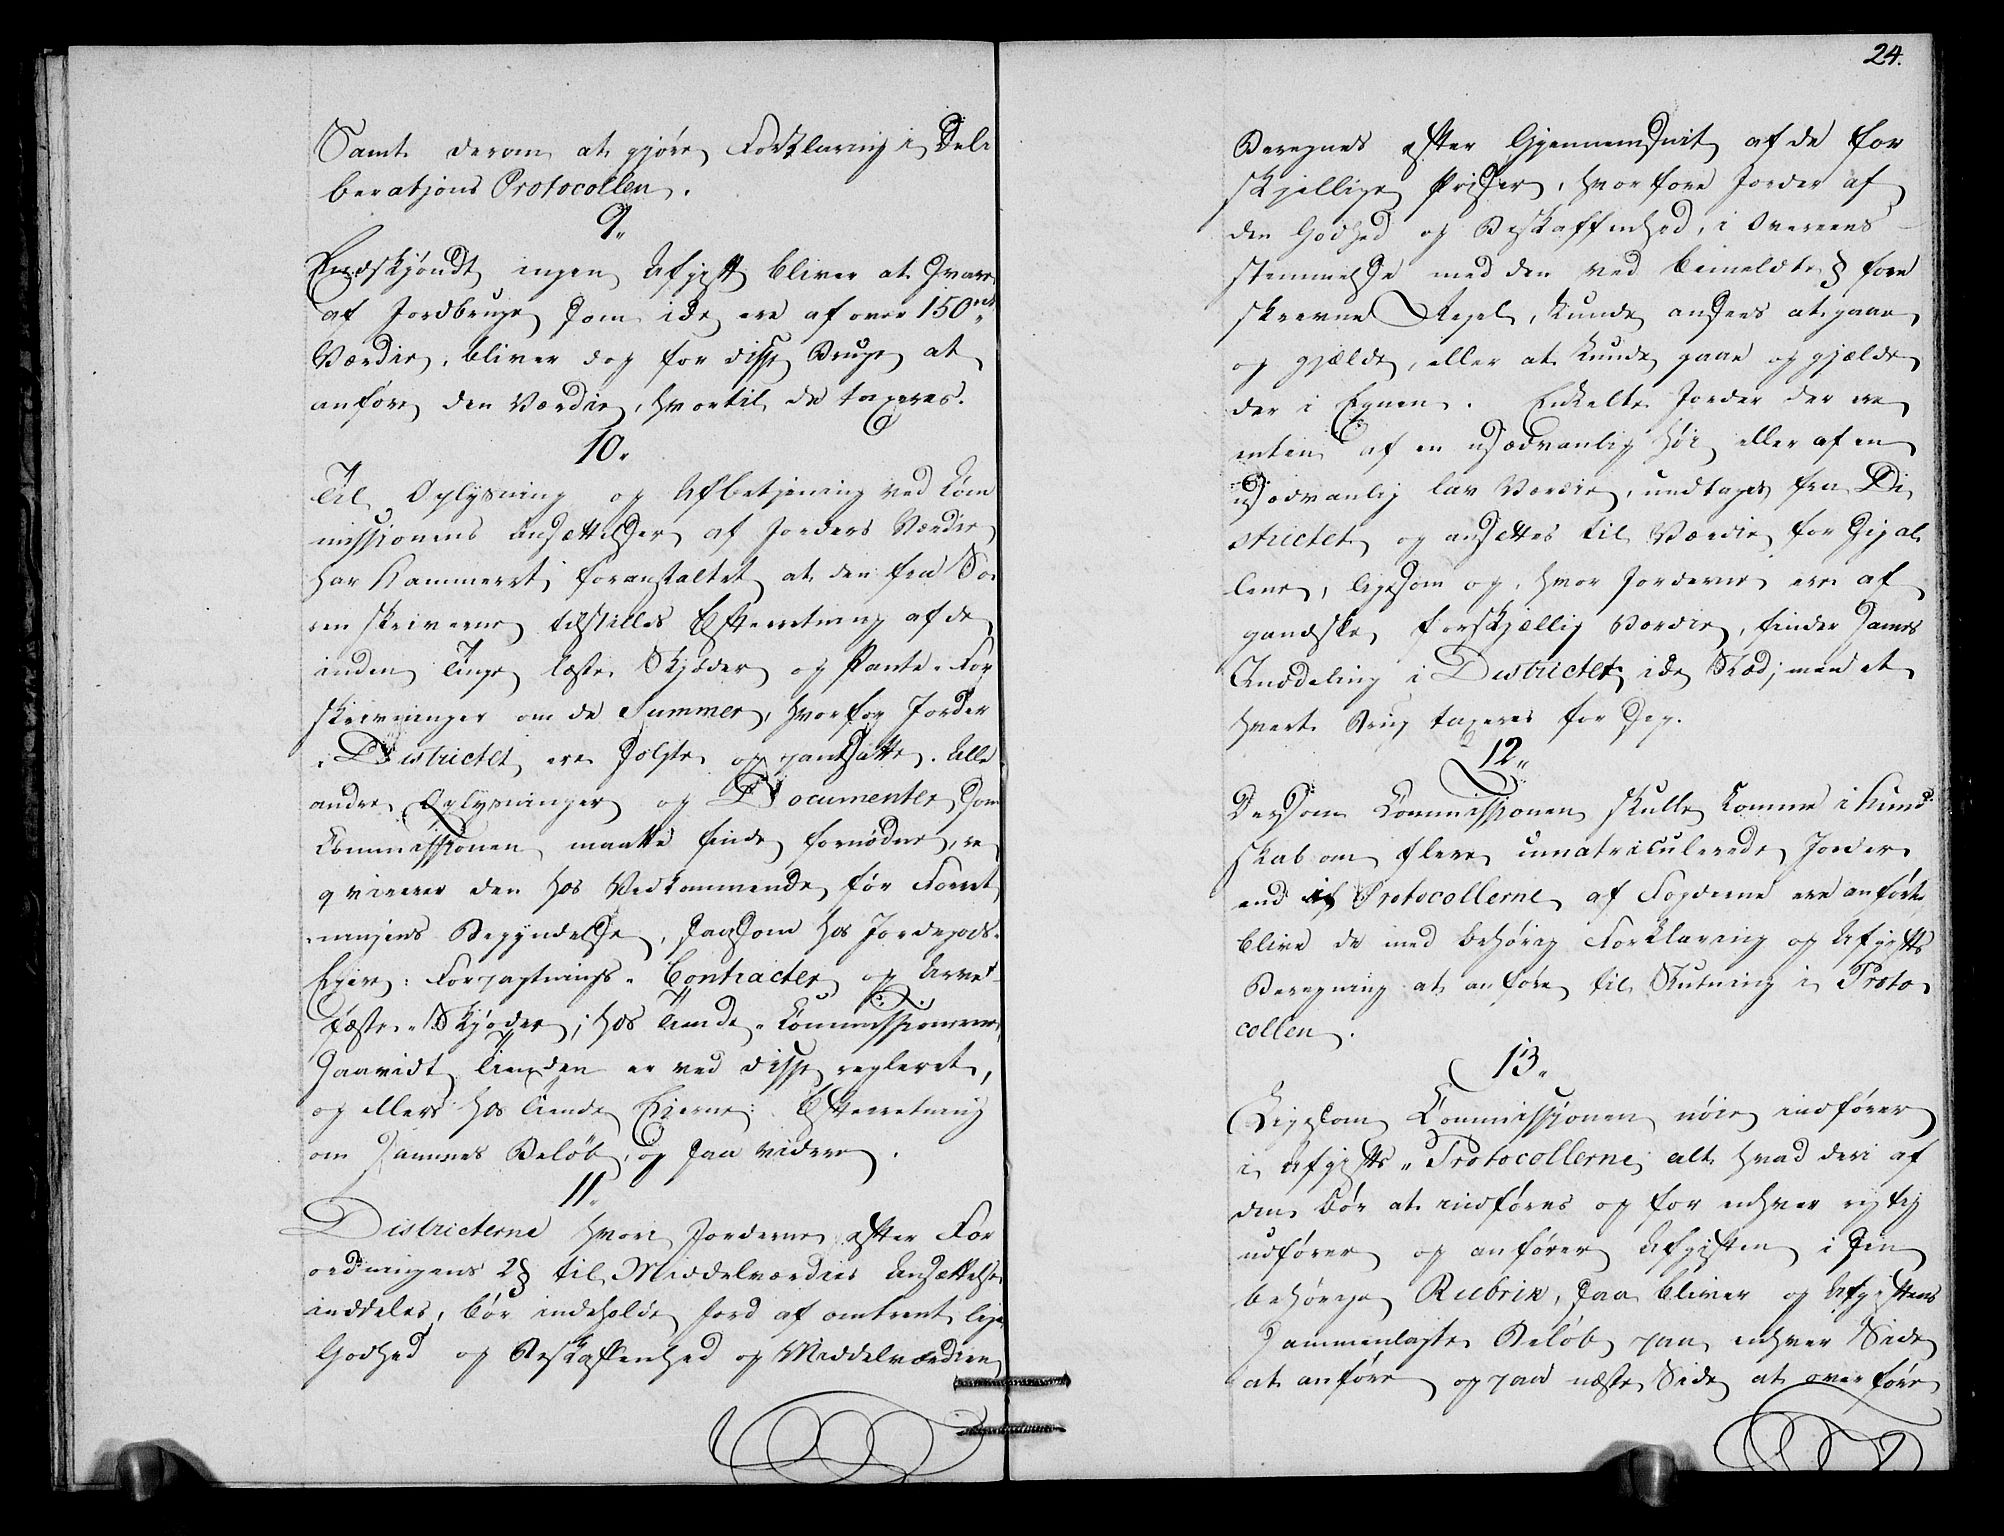 Samt derom at gjøre Forklaring i Deli
berations Protocollen.
9.
Endskjøndt ingen Afgift bliver at svare
af Jordbruge som ide ere af over 150 rd
Værdie, bliver dog for disse Bruge at
anføre den Værdie, hvortil de taxeres.
10.
Til Oplysning og Afbetjening ved Com
missionens Ansættelser af Jorders Værdie
har Kammeret foranstaltet at den fra So
renskriverne tilstilles Efterretning af de
inden Tinge læste Skjøder og Pante-For
skrivninger om de Summer, hvorfor Jorder
i Districtet ere solgte og pantsatte. Alle
andre Oplysninger og Documenter som
Commissionen maatte finde fornødne, re
qvirerer den hos Vedkommende før Forret
ningens Begyndelse, saasom hos Jordegods-
Eiere: Forpagtnings-Contracter og Arve
fæste-Skjøder; hos Tiende-Commissionerne,
saavidt Tienden er ved disse regleret,
og ellers hos Tiende Eierne: Efterretning
om sammes Beløb, og saa videre.
11.
Districterne hvori Jorderne efter For
ordningens 2 § til Middelværdies Ansættelse
inddeles, bør indeholde Jord af omtrent lige
Godhed og Beskaffenhed og Middelværdien
24.
Beregnes efter Gjennemsnit af de for
skjellige Priser, hvorfore Jorder af
den Godhed og Beskaffenhed, i Overeens-
stemmelse med den ved bemeldte § fore
skrevne Regel, kunde ansees at gaae
og gjælde, eller at kunde gaae og gjælde
der i Egnen. Enkelte Jorder der ere
enten af en usædvanlig høi eller af en
usædvanlig lav Værdie, undtages fra Di
strictet og ansettes til Værdie for sig al
lene, ligesom og, hvor Jorderne ere af
gandske forskjællig Værdie, finder sammes
Inddeling i Districter ide Stæd; men et
hvert Brug taxeres for seg.
12.
Dersom Commissionen skulle komme i Kund
skab om flere umatriculerede Jorder
end i Protocollerne af Fogderne ere anførte
blive de med behørig Forklaring og Afgifts
Beregning at anføre til Slutning i Proto
collen.
13.
Ligesom Commissionen nøie indfører
i Afgifts-Protocollerne alt hvad deri af
den bør at indføres og for enhver rigtig
udfører og anfører Afgiften i sin
behørige Rubrik, saa bliver og Afgiftens
sammenlagte Beløb paa enhver Side
at anføre og paa næste Side at overføre